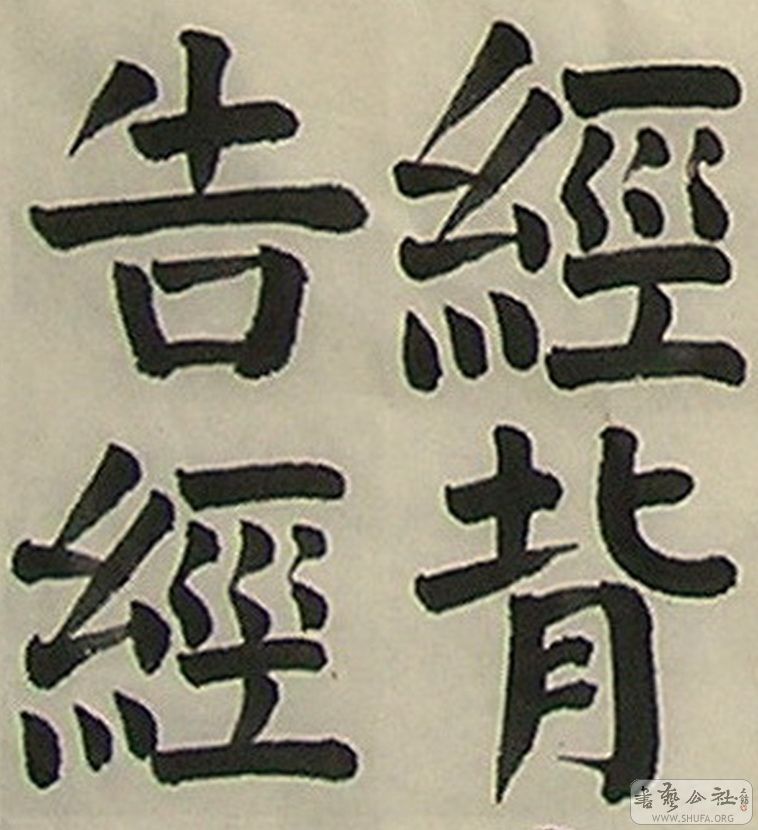 經背
告經
書藝公社
WWW.SHUFA.ORG